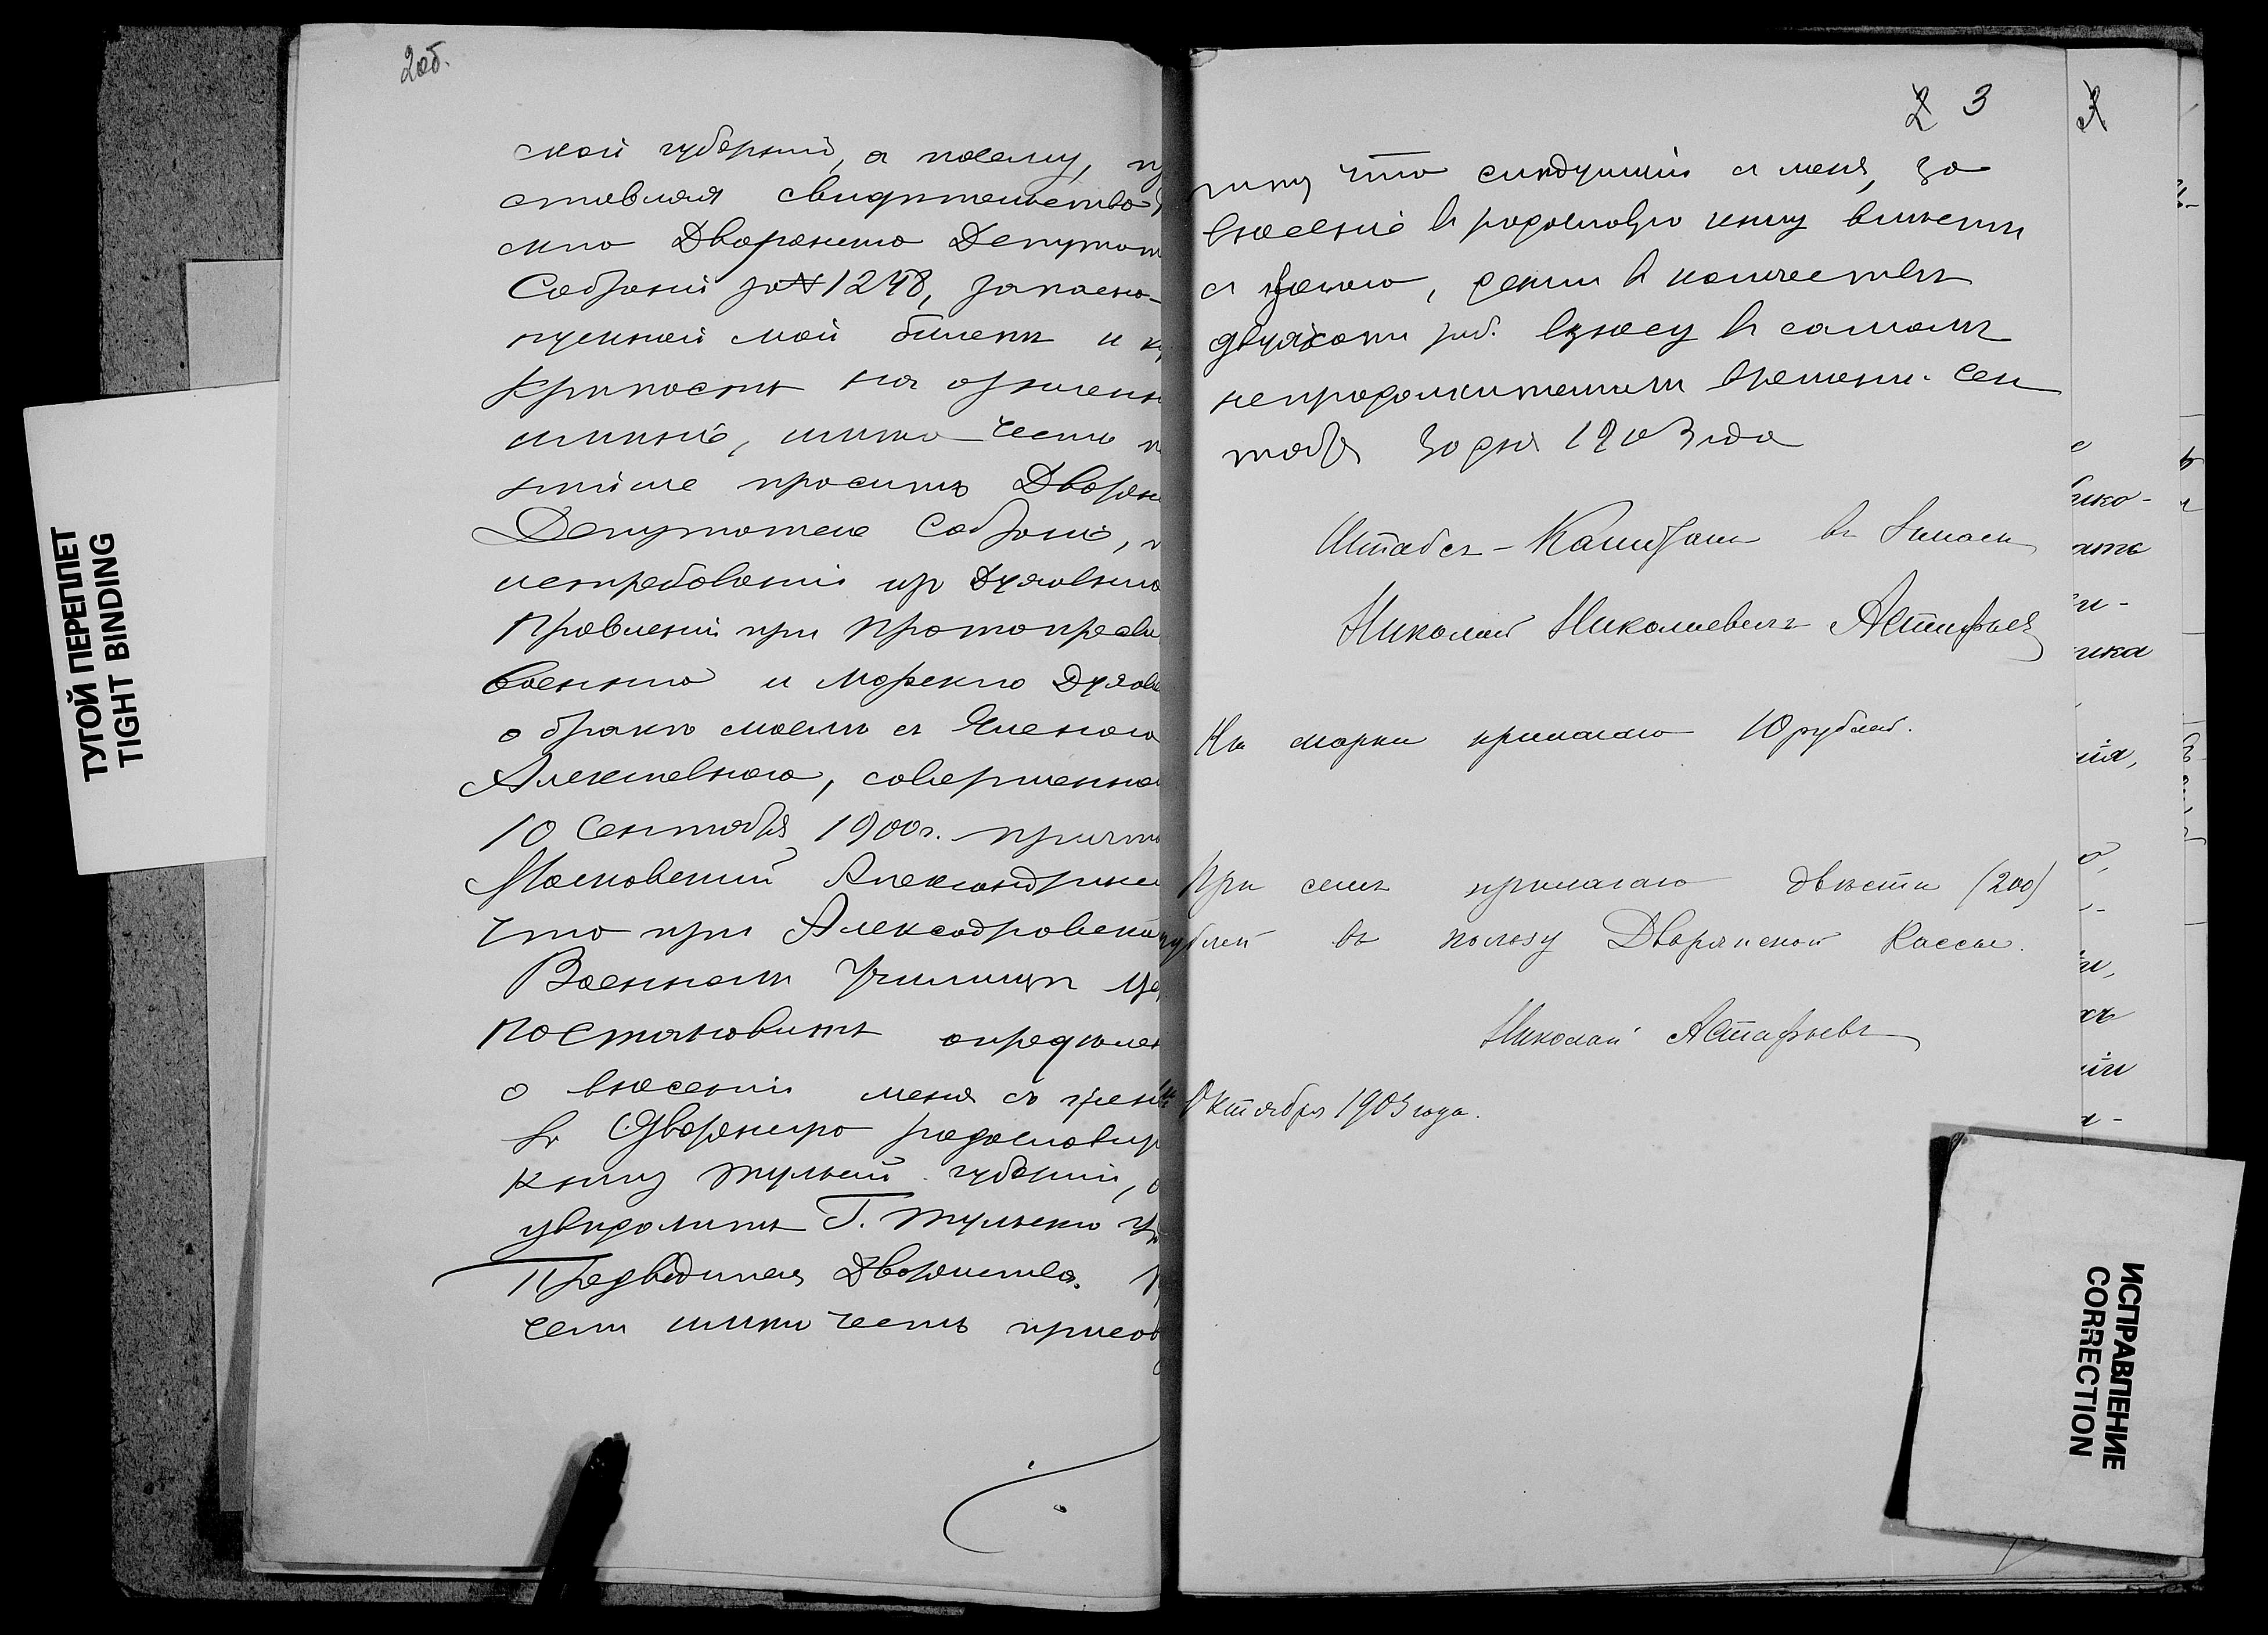 2об.
ской губернiи, а посему, пр
ставляя свидѣтельство
скаго Дворянскаго Депутат
Собранiя за № 1248, запасно-
пускной мой билетъ и к
крѣпость на 
имѣнiе, имѣю честь п
нѣйше просить Дворян
Депутатское Собранiе, п
истребованiи изъ Духовнаго
Правленiя при Протопресви
Военнаго и Морского Духов
о бракѣ моемъ съ Еленою
Алексѣевною, совершенном
10 Сентября 1900 г. причтомъ
Московской Александровск
что при Александровскомъ
Военномъ Училищѣ це
постановить опредѣлен
о внесенiи меня съ женой
въ Дворянскую родословную
книгу Тульской губернiи, о
увѣдомить Г. Тульскаго Гу
Предводителя Дворянства. П
семъ имѣю честь присов
2 3
что слѣдующiя съ меня, за
внесенiе въ родословную книгу вмѣстѣ
съ женою, деньги въ количествѣ
двухсотъ руб. взнесу въ самомъ
непродолжительномъ времени. Сен
тября 30 дня 1903 года
Штабсъ-Капитанъ въ запасѣ
Николай Николаевичъ Астафьевъ
На марки прилагаю 10 рублей.
При семъ прилагаю двѣсти (200)
рублей въ пользу Дворянской Кассы.
Николай Астафьевъ
Октября 1903 года.
ТУГОЙ ПЕРЕПЛЕТ
TIGHT BINDING
ИСПРАВЛЕНИЕ
CORRECTION